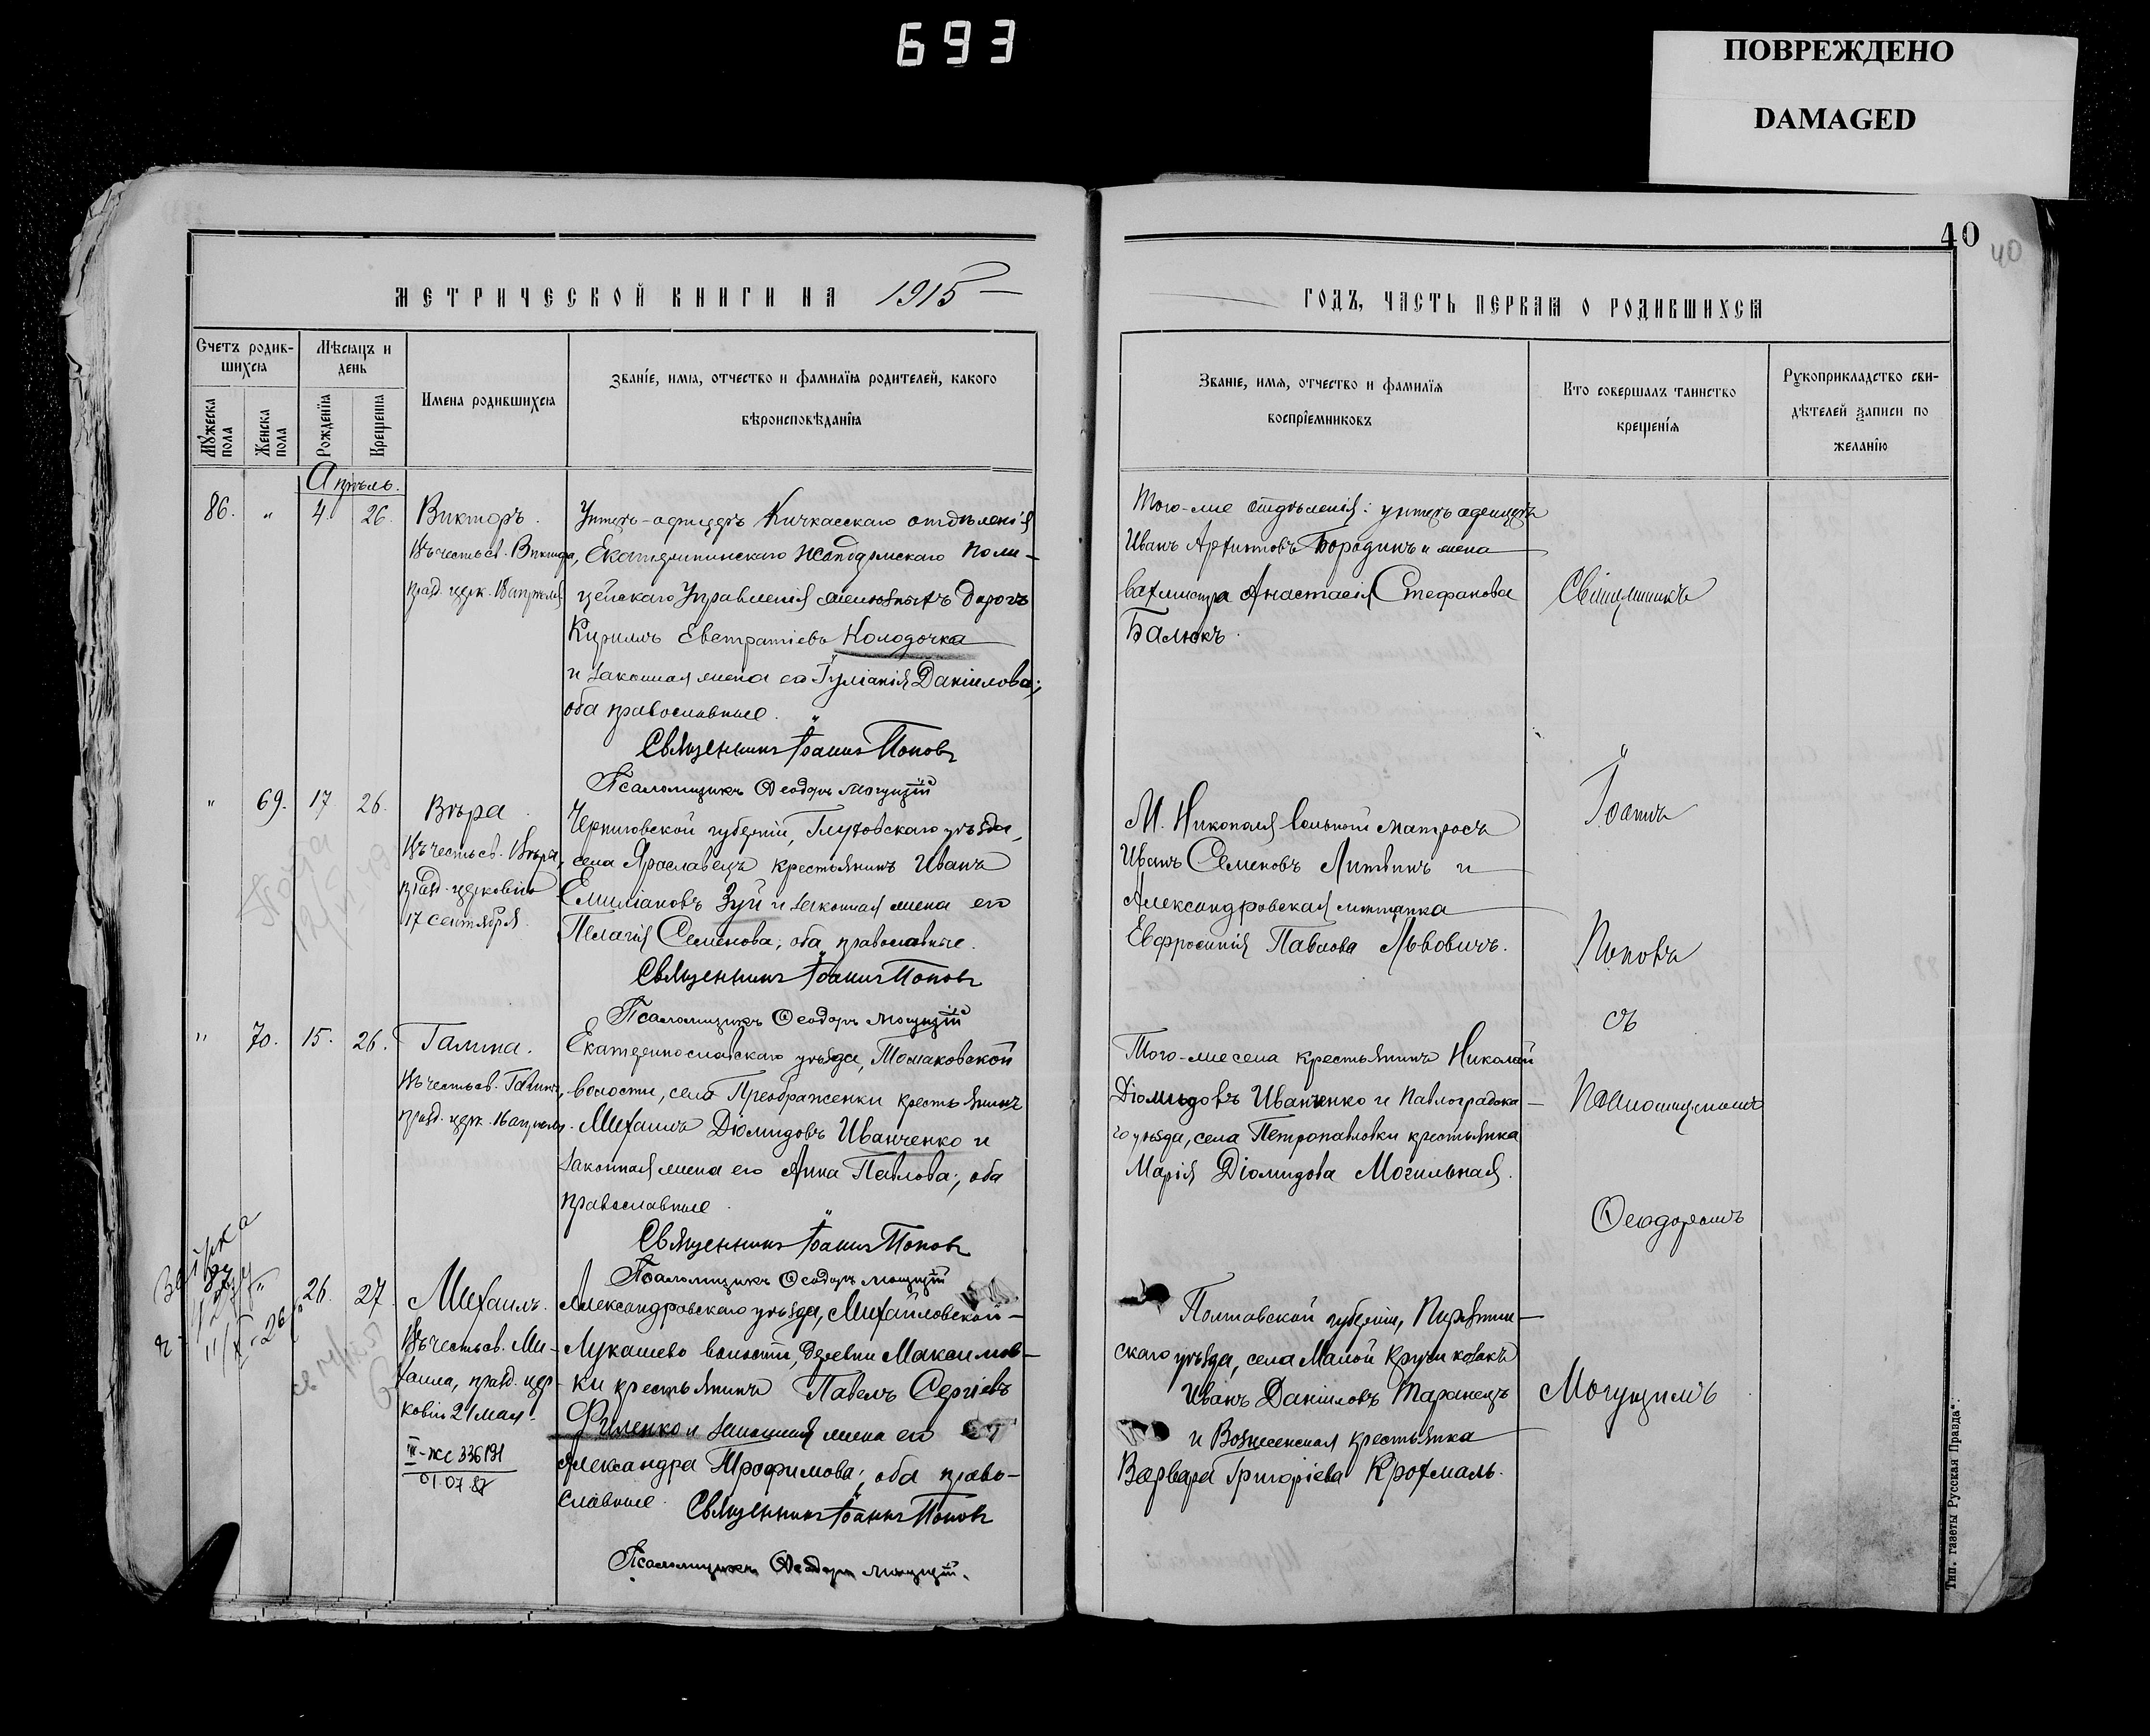 693
ПОВРЕЖДЕНО
DAMAGED
40
40
МЕТРИЧЕСКОЙ КНИГИ НА 1915
Счетъ родив-
шихся
Мѣсяцъ и
день
Мужеска
пола
Женска
пола
Рожденїя
Крещенїя
Имена родившихся
Званїе, имя, отчество и фамилїя родителей, какого
вѣроисповѣданїя
Апрѣль.
86. " 4. 26. Викторъ.
Въ честь св. Виктора,
празд. церк. 18 апрѣля
Унтеръ-офицеръ Кичкасскаго отдѣленія
Екатерининскаго жандармскаго поли-
цейскаго Управленія желѣзныхъ дорогъ
Кириллъ Евстратіевъ Колодочка
и законная жена его Іуліанія Даніилова;
оба православные.
Священникъ Іоаннъ Поповъ
Псаломщикъ Ѳеодоръ Могущій
" 69. 17. 26. Вѣра.
Въ честь св. Вѣры,
празд. церковію
17 сентября.
Черниговской губерніи, Глуховскаго уѣзда,
села Ярославецъ крестьянинъ Иванъ
Емиліановъ Зуй и законная жена его
Пелагія Семенова; оба православные.
Священникъ Іоаннъ Поповъ
Псаломщикъ Ѳеодоръ Могущій
" 70. 15. 26. Галина.
Въ честь св. Галины,
празд. церк. 16 апрѣля.
Екатеринославскаго уѣзда, Томаковской
волости, села Преображенки крестьянинъ
Михаилъ Діомидовъ Иванченко и
законная жена его Анна Павлова; оба
православные.
Священникъ Іоаннъ Поповъ
Псаломщикъ Ѳеодоръ Могущій
87 " 26. 27. Михаилъ.
Въ честь св. Ми-
хаила, празд. цер-
ковію 21 мая.
III-ЖС 336191
01.07.87
Александровскаго уѣзда, Михайловской-
Лукашево волости, деревни Максимов-
ки крестьянинъ Павелъ Сергіевъ
Филенко и законная жена его
Александра Трофимова; оба право-
славные.
Священникъ Іоаннъ Поповъ
Псаломщикъ Ѳеодоръ Могущій.
ГОДЪ, ЧАСТЬ ПЕРВАЯ О РОДИВШИХСЯ
Званїе, имя, отчество и фамилїя
воспрїемниковъ
Кто совершалъ таинство
крещенїя
Рукоприкладство сви-
дѣтелей записи по
желанїю
Того-же отдѣленія: унтеръ офицеръ
Иванъ Архиповъ Бородинъ и жена
вахмистра Анастасія Стефанова
Балюкъ.
М. Никополя вольный матросъ
Иванъ Семеновъ Литвинъ и
Александровская мѣщанка
Евфросинія Павлова Львовичъ.
Того-же села крестьянинъ Николай
Діомидовъ Иванченко и Павлоградска-
го уѣзда, села Петропавловки крестьянка
Марія Діомидова Могильная.
Полтавской губерніи, Пирятин-
скаго уѣзда, села Малой Кручи козакъ
Иванъ Даніиловъ Таранецъ
и Вознесенская крестьянка
Варвара Григоріева Крохмаль.
Священникъ
Іоаннъ
Поповъ
съ
Псаломщикомъ
Ѳеодоромъ
Могущимъ
Тип. газеты Русская Правда".